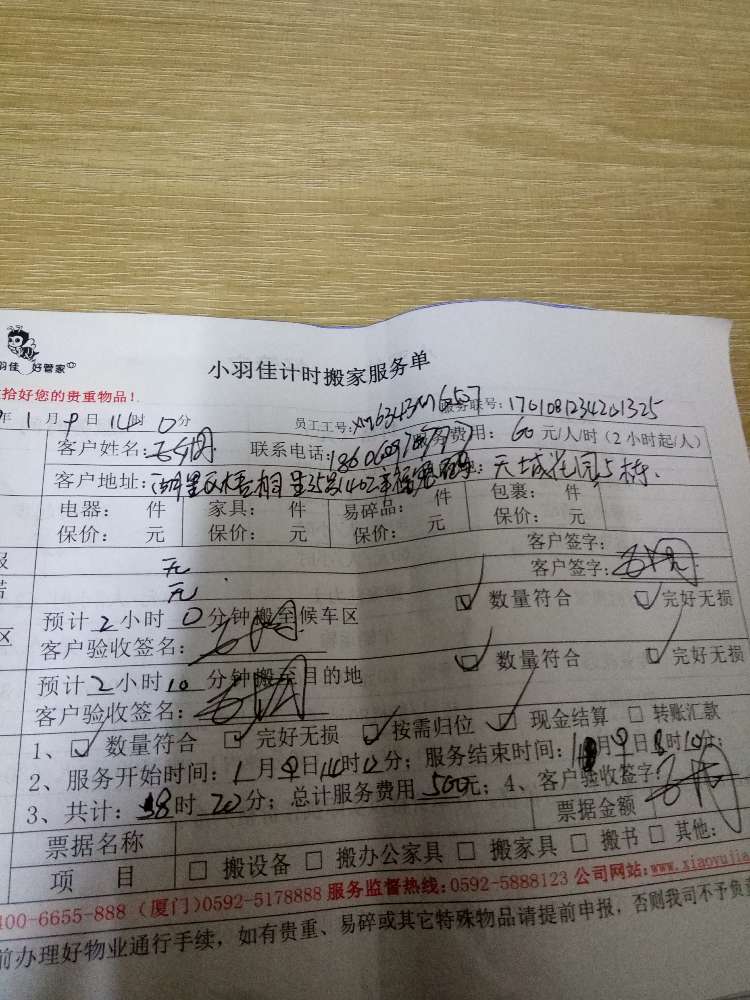 羽佳 好管家
小羽佳计时搬家服务单
拾好您的贵重物品！
年 1 月 9 日 14 时 0 分
员工工号：
服务联号：1701081234201325
客户姓名：
联系电话：
服务费用：60 元/人/时（2 小时起/人）
客户地址：
天城花园5栋
电器： 件 家具： 件 易碎品： 件 包裹： 件
保价： 元 保价： 元 保价： 元 保价： 元
客户签字：
无
客户签字：
无
预计 2 小时 0 分钟搬至候车区
数量符合 完好无损
客户验收签名：
预计 2 小时 10 分钟搬至目的地
数量符合 完好无损
客户验收签名：
1、 数量符合 完好无损 按需归位 现金结算 转账汇款
2、服务开始时间：1 月 9 日 14 时 0 分；服务结束时间： 月 9 日 时 10 分；
3、共计： 8 时 20 分；总计服务费用 500 元；4、客户验收签字：
票据名称
票据金额
项 目
搬设备 搬办公家具 搬家具 搬书 其他：
400-6655-888（厦门）0592-5178888 服务监督热线：0592-5888123 公司网站：www.xiaoyujia
前办理好物业通行手续，如有贵重、易碎或其它特殊物品请提前申报，否则我司不予负